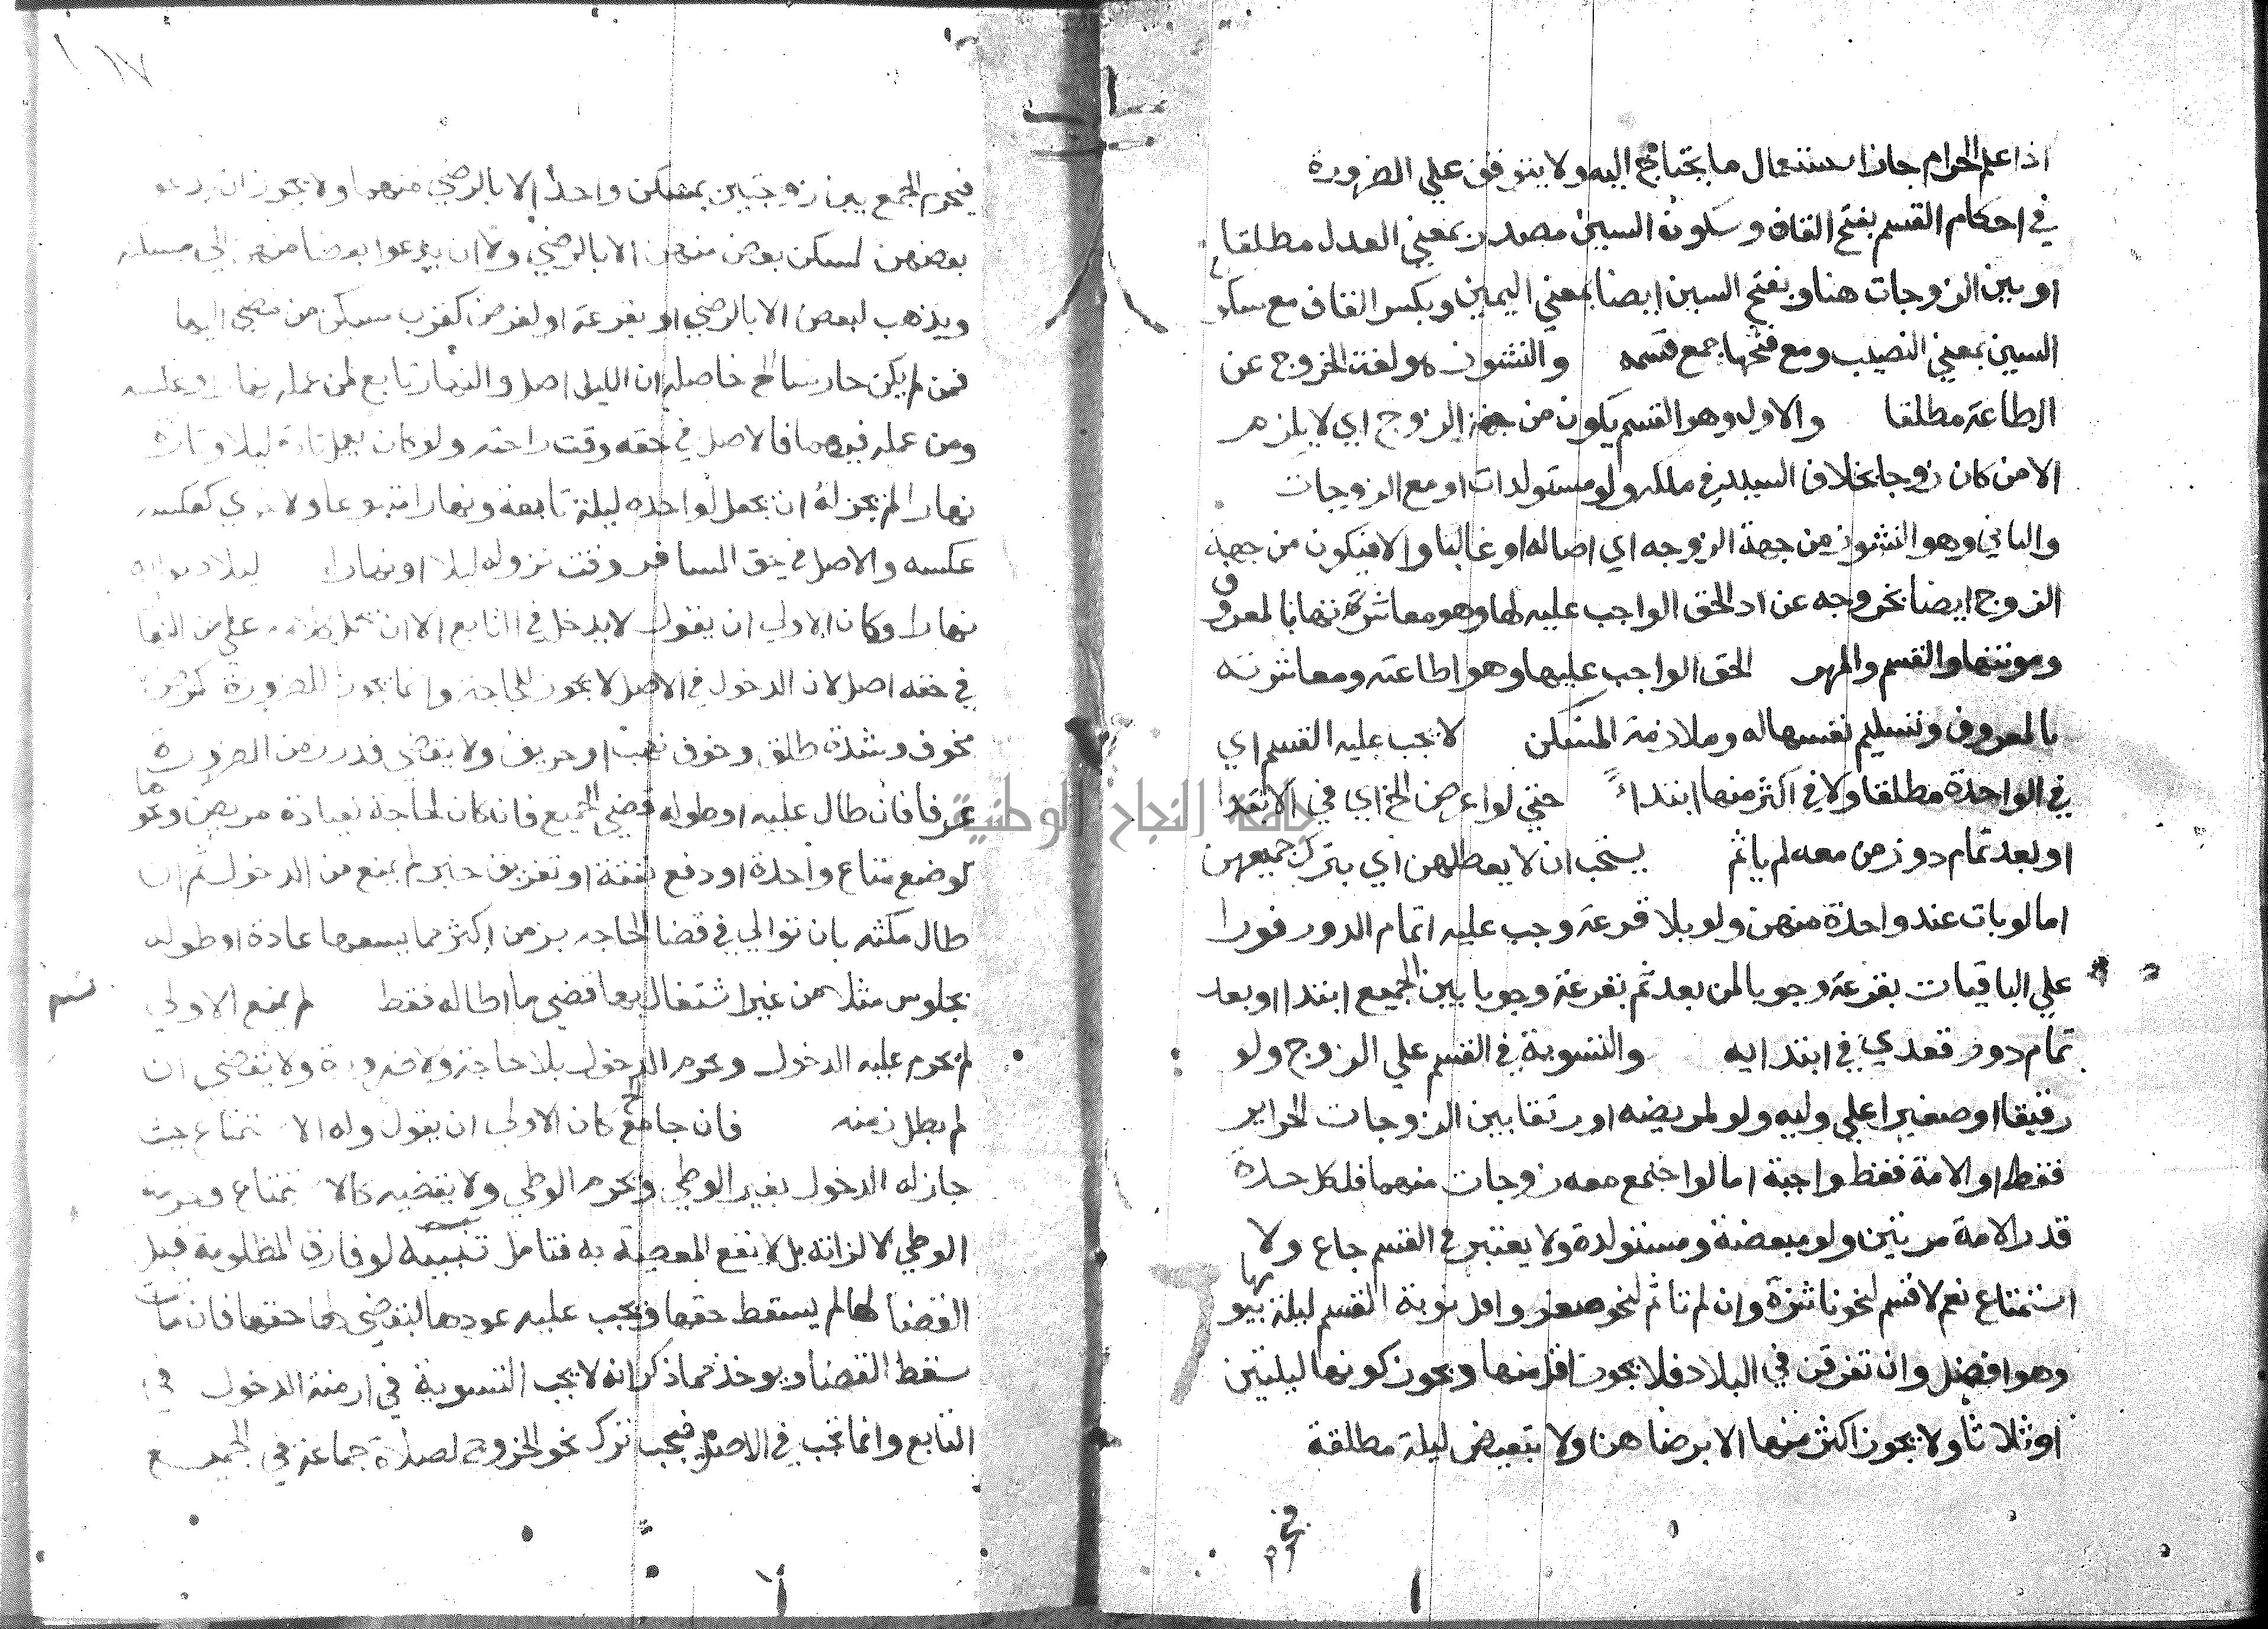 اذا علم الحرام جاز استعمال ما يحتاج اليه ولا يتوقف علي الضرورة
في احكام القسم بفتح القاف وسكون السين مصدر بمعني العدل مطلقا
او بين الزوجات هنا وبفتح السين ايضا بمعني اليمين وبكسر القاف مع سكو
السين بمعني النصيب ومع فتحها جمع قسمه والنشوز هو لغة الخروج عن
الطاعة مطلقا والاول وهو القسم يكون من جهة الزوج اي لا يلزم
الا من كان زوجا بخلاف السيد في ملكه ولو مستولدات او مع الزوجات
والثاني وهو النشوز من جهة الزوجه اي اصاله او غالبا والا فيكون من جهة
الزوج ايضا بخروجه عن اد الحق الواجب عليه لها وهو معاشرتها بالمعروف
ومونتها والقسم والمهر الحق الواجب عليها وهو اطاعته ومعاشرته
بالمعروف وتسليم نفسها له وملازمة المسكن لا يجب عليه القسم اي
في الواحدة مطلقا ولا في اكثر منها ابتداءً حتي لو اعرض الخ اي في الابتدا
او بعد تمام دور من معه لم ياثم يستحب ان لا يعطلهن اي بترك جميعهن
اما لو بات عند واحدة منهن ولو بلا قرعة وجب عليه اتمام الدور فورا
علي الباقيات بقرعة وجوبا لمن بعد ثم بقرعة وجوبا بين الجميع ابتدا او بعد
تمام دور تعدي في ابتدايه والتسوية في القسم علي الزوج ولو
رقيقا او صغيرا علي وليه ولو لمريضه او رتقا بين الزوجات الحراير
فقط او الامة فقط واجبة اما لو اجتمع معه زوجات منهما فلكل حرة
قدر الامة مرتين ولو مبعضة ومستولدة ولا يعتبر في القسم جماع ولا
استمتاع نعم لا قسم لنحو ناشزة وان لم تاثم لنحو صغر واقل نوبة القسم ليلة بيومها
وهو افضل وان تفرقن في البلاد فلا يجوز اقل منها ويجوز كونها ليلتين
او ثلاثا ولا يجوز اكثر منها الا برضاهن ولا بتبعيض ليلة مطلقة
١١٧
فيحرم الجمع بين زوجتين بمسكن واحد الا بالرضي منهما ولا يجوز ان يدعو
بعضهن لسكن بعض منهن الا بالرضي ولا ان يدعوا بعضا منهن الي مسكنه
ويذهب لبعض الا بالرضي او بقرعة او لغرض كقرب مسكن من مضي اليها
فمن لم يكن حارسا الخ حاصله ان الليل اصل والنهار تابع لمن عمله نهارا وعكسه
ومن عمله فيهما فالاصل في حقه وقت راحته ولو كان يعمل تارة ليلا وتارة
نهارا لم يجز له ان يجعل لواحده ليلة تابعة ونهارا متبوعا ولاخري كعكسه
عكسه والاصل في حق المسافر وقت نزوله ليلا او نهارا ليلا دون
نهارا وكان الاولي ان يقول لا يدخل في التابع الا ان يحمل علي من النهار
في حقه اصل لان الدخول في الاصل لا يجوز للحاجة وانما يجوز للضرورة كمرض
مخوف وشدة طلق وخوف نهب او حريق ولا يقضي قدر زمن الضرورة
عرفا فان طال عليه او طوله قضي الجميع فان كان لحاجة لعيادة مريض ونحوها
لوضع متاع واحدة او دفع نفقة او تعريف خبر لم يمنع من الدخول ثم ان
طال مكثه بان توالي في قضا الحاجه بزمن اكثر مما يسعها عادة او طوله
بجلوس مثلا من غير اشتغال بها قضي ما اطاله فقط لم يمنع الاولي
لم يحرم عليه الدخول ويحرم الدخول بلا حاجة ولا ضرورة ولا يقضي ان
لم يطل زمنه فان جامع كان الاولي ان يقول وله الاستمتاع حيث
جاز له الدخول بغير الوطي ويحرم الوطي ولا يقضيه كالاستمتاع وحرمة
الوطي لا لذاته بل لا تقع المعصية به فتامل تنبيه لو فارق المظلومة قبل
القضا لها لم يسقط حقها فيجب عليه عودها ليقضي لها حقها فان ماتت
سقط القضا ويوخذ مما ذكر انه لا يجب التسوية في ازمنة الدخول في
التابع وانما تجب في الاصل فيجب ترك نحو الخروج لصلاة جماعة في الجميع